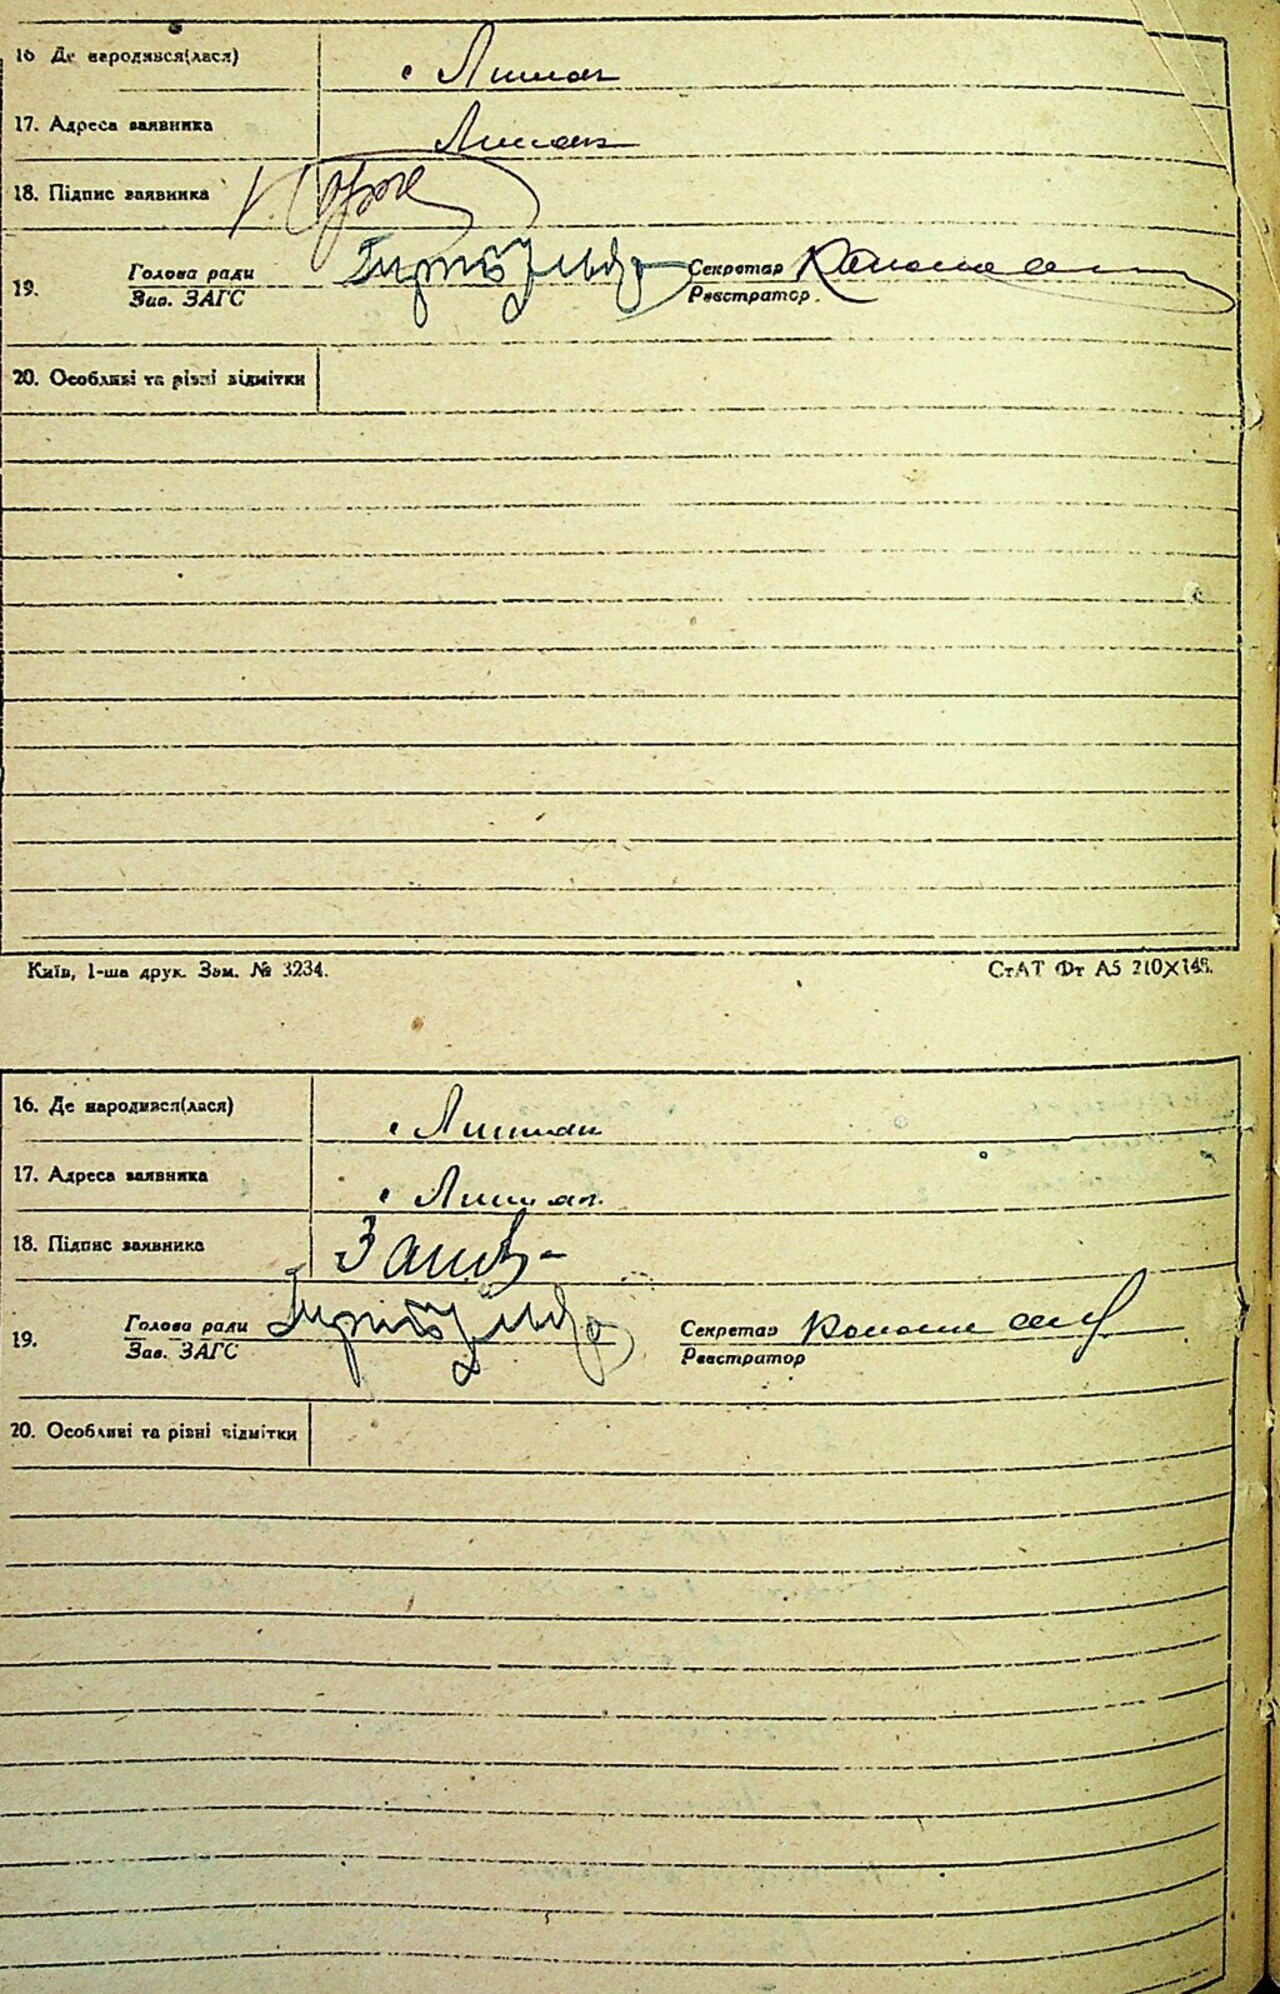 16 Де народився(лася) с Лиман
17. Адреса заявника Лиман
18. Підпис заявника
Голова ради Секретар
19.
Зав. ЗАГС Реєстратор.
20. Особливі та різні відмітки
Київ, 1-ша друк. Зам. № 3234. СтАТ Фт А5 210×148.
16. Де народився(лася) с Лиман
17. Адреса заявника с Лиман.
18. Підпис заявника
Голова ради Секретар
19.
Зав. ЗАГС Реєстратор
20. Особливі та різні відмітки